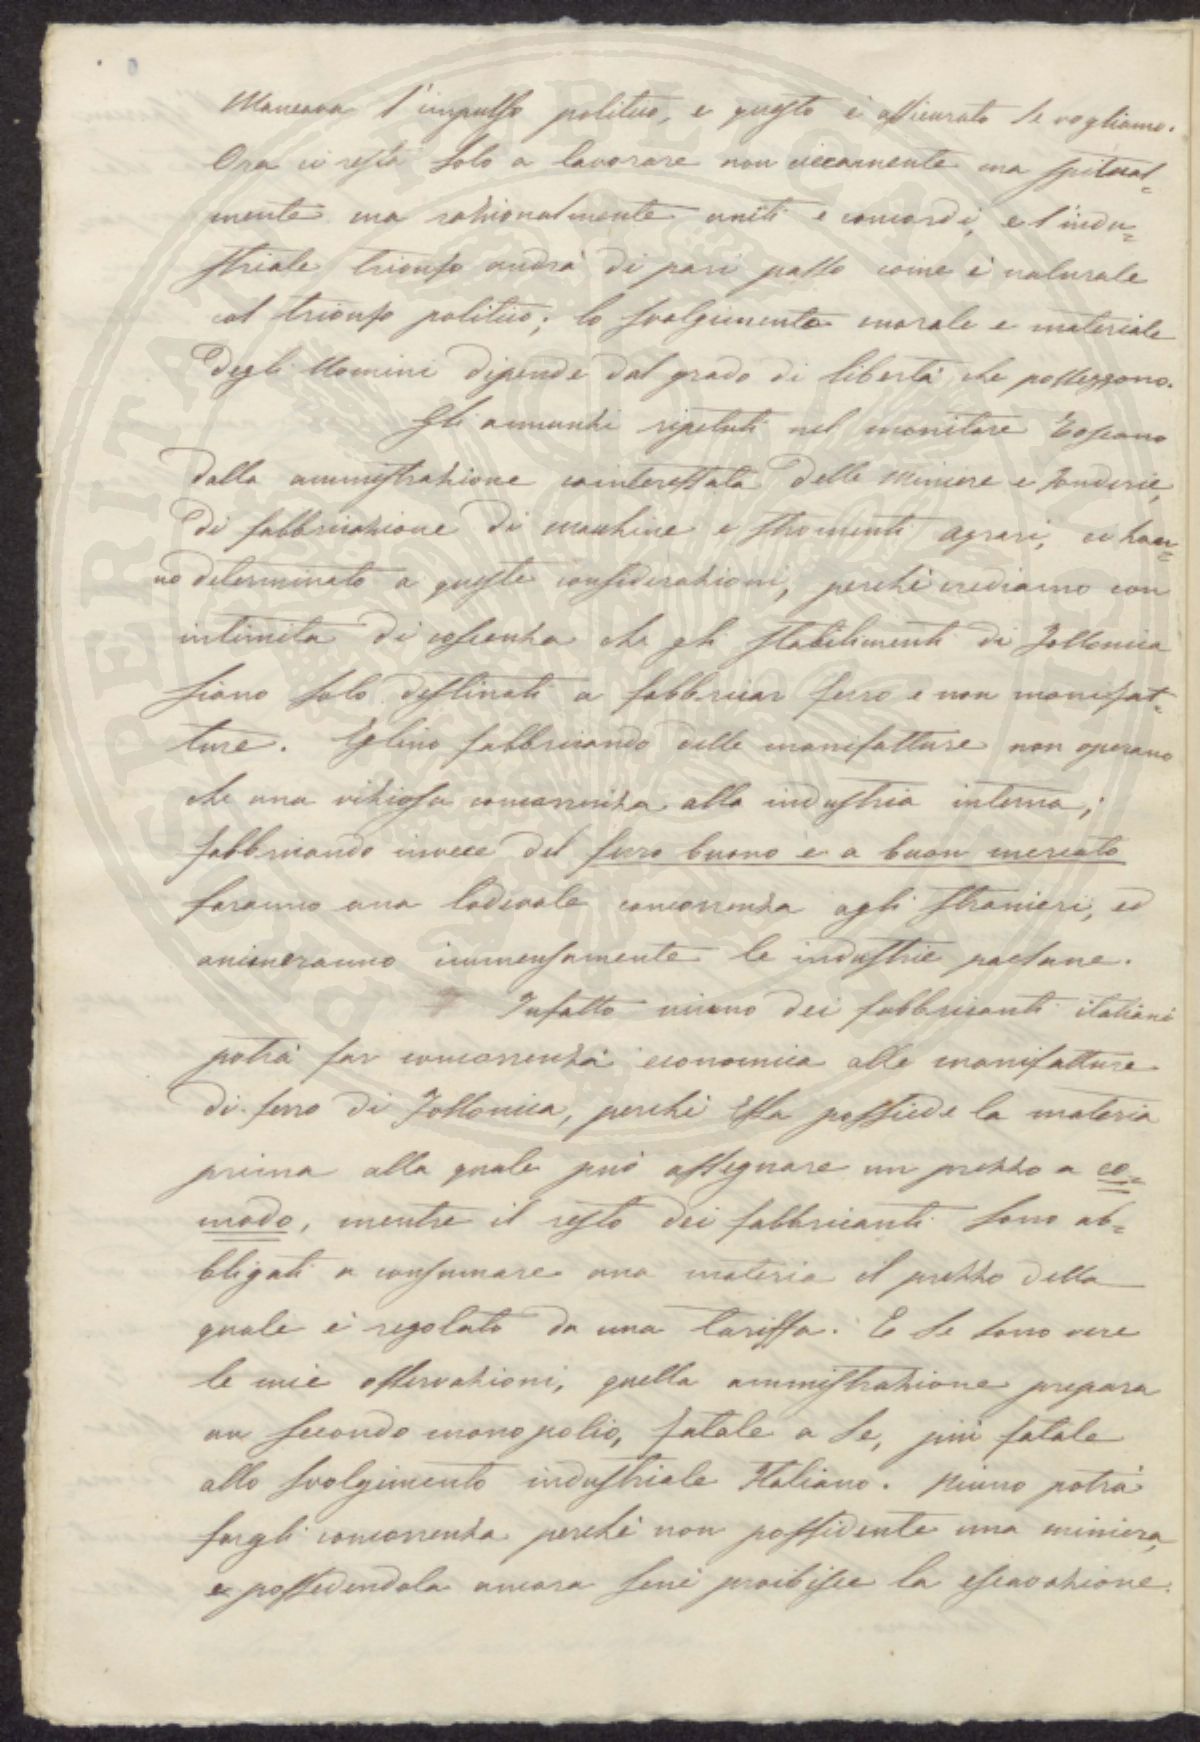 Mancava l'impulso politico, e questo è assicurato se vogliamo.
Ora ci resta solo a lavorare non ciecamente ma spitual=
mente ma razionalmente uniti e concordi, e l'indu=
striale trionfo andrà di pari passo come è naturale
col trionfo politico; lo svolgimento morale e materiale
degli Uomini dipende dal grado di libertà che posseggono.
Gli annunzi ripetuti nel monitore Toscano
dalla amministrazione cointeressata delle Miniere e Fonderie,
di fabbricazione di macchine e stromenti agrari, ci han=
no determinato a queste considerazioni, perchè crediamo con
intimità di coscenza che gli stabilimenti di Follonica
siano solo destinati a fabbricar ferro e non manifat=
ture. Eglino fabbricando delle manifatture non operano
che una viziosa concorrenza alla industria interna;
fabbricando invece del ferro buono e a buon mercato
faranno una lodevole concorrenza agli stranieri, ed
animeranno immensamente le industrie paesane.
Infatto niuno dei fabbricanti italiani
potrà far concorrenza economica alle manifatture
di ferro di Follonica, perchè Essa possiede la materia
prima alla quale può assegnare un prezzo a co=
modo, mentre il resto dei fabbricanti sono ob=
bligati a consumare una materia il prezzo della
quale è regolato da una tariffa. E se sono vere
le mie osservazioni, quella amministrazione prepara
un secondo monopolio, fatale a se, più fatale
allo svolgimento industriale Italiano. Niuno potrà
fargli concorrenza perchè non possidente una miniera,
e possedendola ancora sene proibisce la escavazione.
PROSPERITATI PUBLICAE AUGENDAE